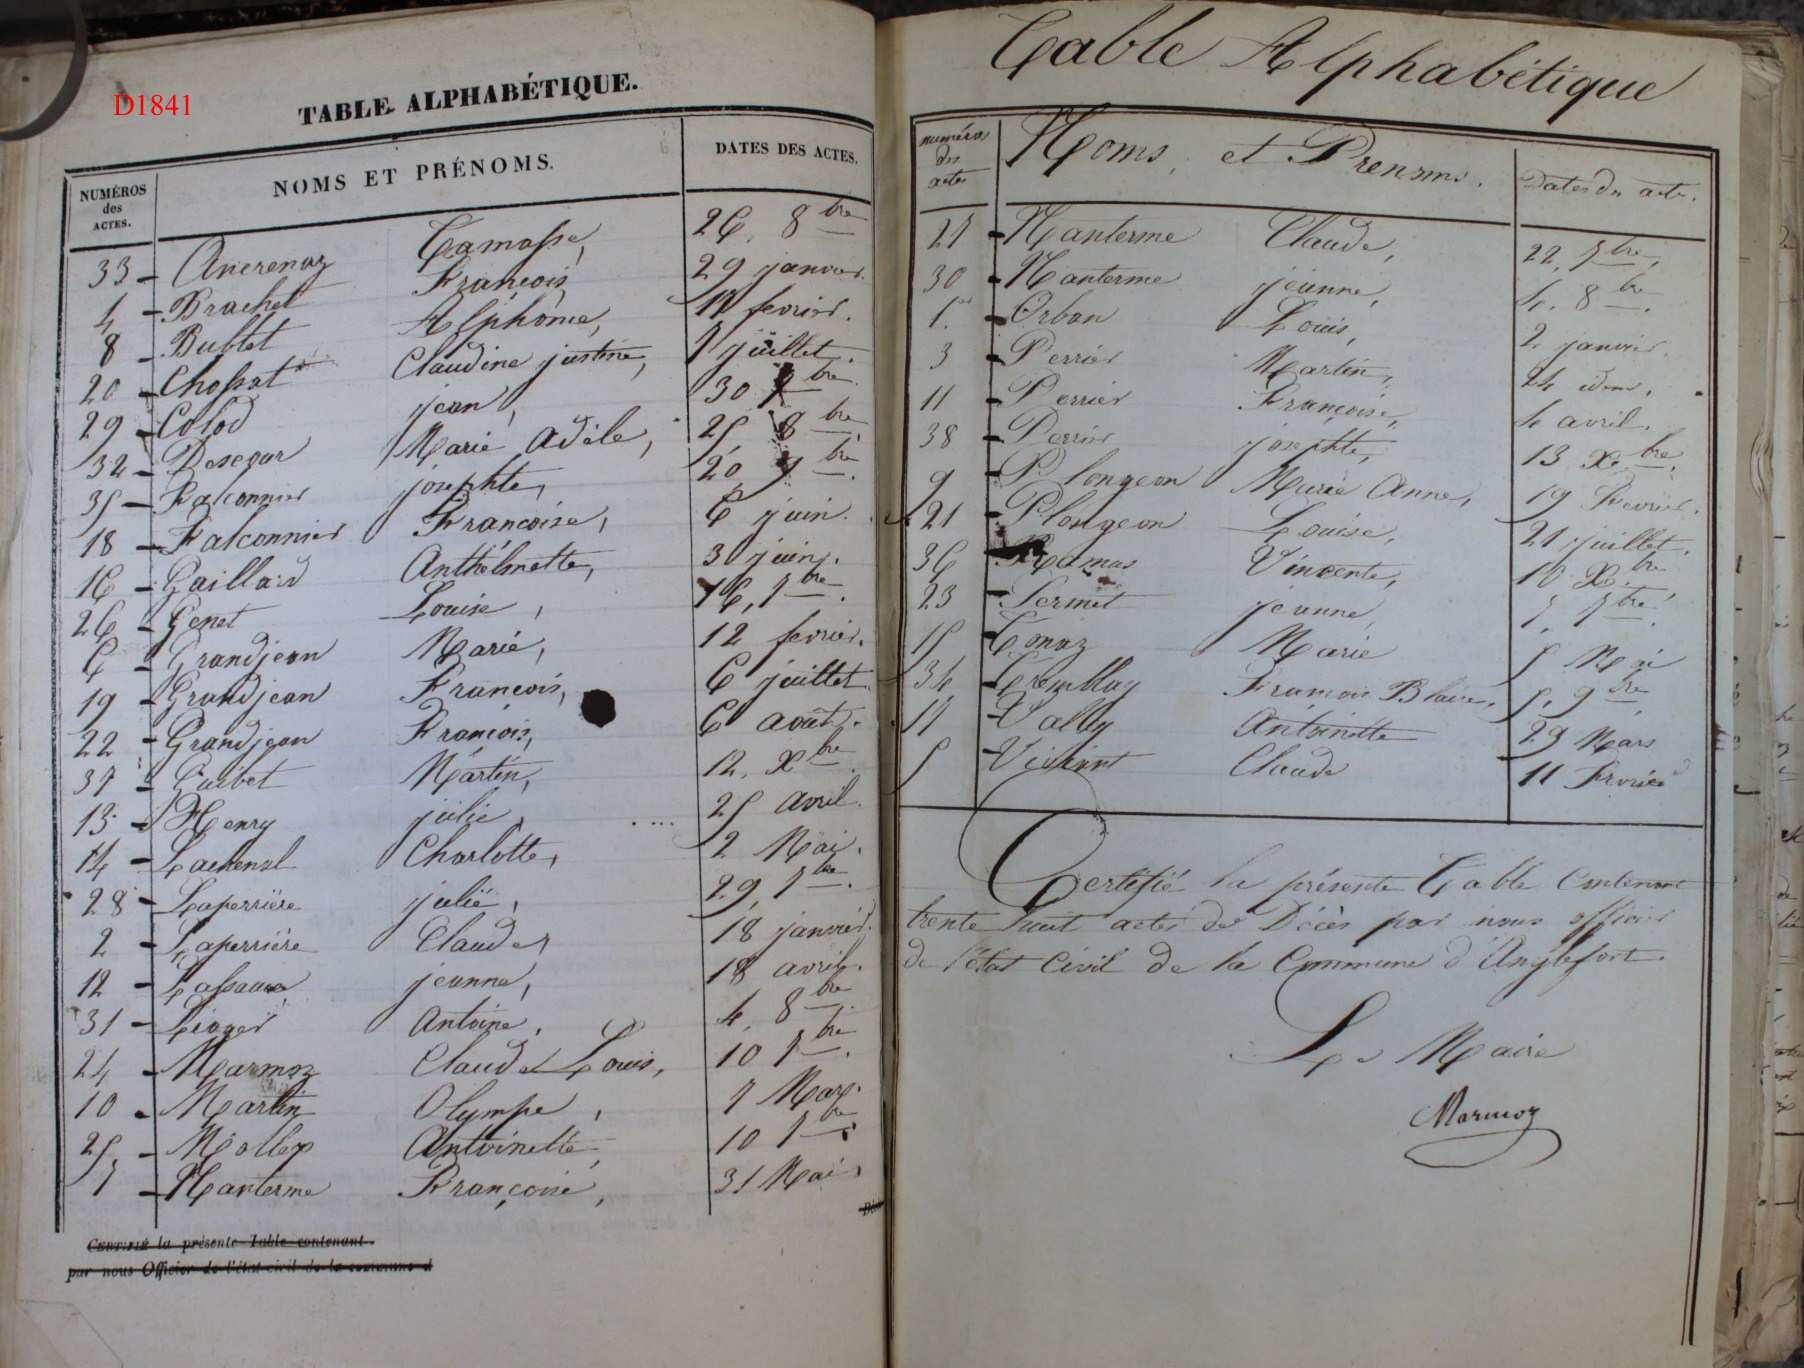 D1841
TABLE ALPHABÉTIQUE.
NUMÉROS des ACTES. NOMS ET PRÉNOMS. DATES DES ACTES.
33 - Ancrenaz Gamasse, 26, 8bre
4 - Brachet François 29 janvier.
8 - Bublet Alphonse, 17 fevrier.
20 - Chossat Claudine justine, 7 juillet.
29 - Colod jean, 30 7bre
32 - Descour Marie Adèle, 25, 8bre
35 - Falconnier josephte, 20 9bre.
18 - Falconnier Françoise, 6 juin.
16 - Gaillard Anthelmette, 3 juin.
26 - Genet Louise, 16, 7bre.
6 - Grandjean Marie, 12 fevrier.
19 - Grandjean François, 6 juillet.
22 - Grandjean François, 6 août.
37 - Guibet Martin, 12, Xbre.
13 - Henry julie, 25 avril.
14 - Lachenal Charlotte, 2 Mai.
28 - Laperrière julie, 29, 7bre.
2 - Laperrière Claude, 18 janvier.
12 - Lassaux jeanne, 18 avril.
31 - Lioger Antoine, 4, 8bre.
24 - Marmoz Claude Louis, 10 7bre.
10 - Martin Olympe, 7 Mars.
25 - Mollex Antoinette, 10 7bre
7 - Nanterme Françoise, 31 Mai
CERTIFIÉ la présente Table contenant
par nous Officier de l'état civil de la commune d
Table Alphabétique
numéros des actes Noms et Prenoms. Dates des actes.
27 - Nanterme Claude, 22, 7bre,
30 - Nanterme jeanne, 4, 8bre.
1er - Orban Louis, 2 janvier.
3 - Perrier Martin, 24 idem.
11 - Perrier Françoise, 4 avril.
38 - Perrier josephte, 13 Xbre.
9 - Plongeon Marie Anne, 19 Fevrier.
21 - Plongeon Louise, 21 juillet.
36 - Ramas Vincente, 10 Xbre,
23 - Sermet jeanne, 7, 7bre.
15 - Tonaz Marie 5 Mai
34 - Tremblay François Blaise, 5, 9bre.
17 - Vally Antoinette 29 Mars
5 - Vivient Claude 11 Fevrier
Certifié la présente Table Contenant
trente huit actes de Décès par nous officier
de l'état Civil de la Commune d'Anglefort.
Le Maire
Marmoz